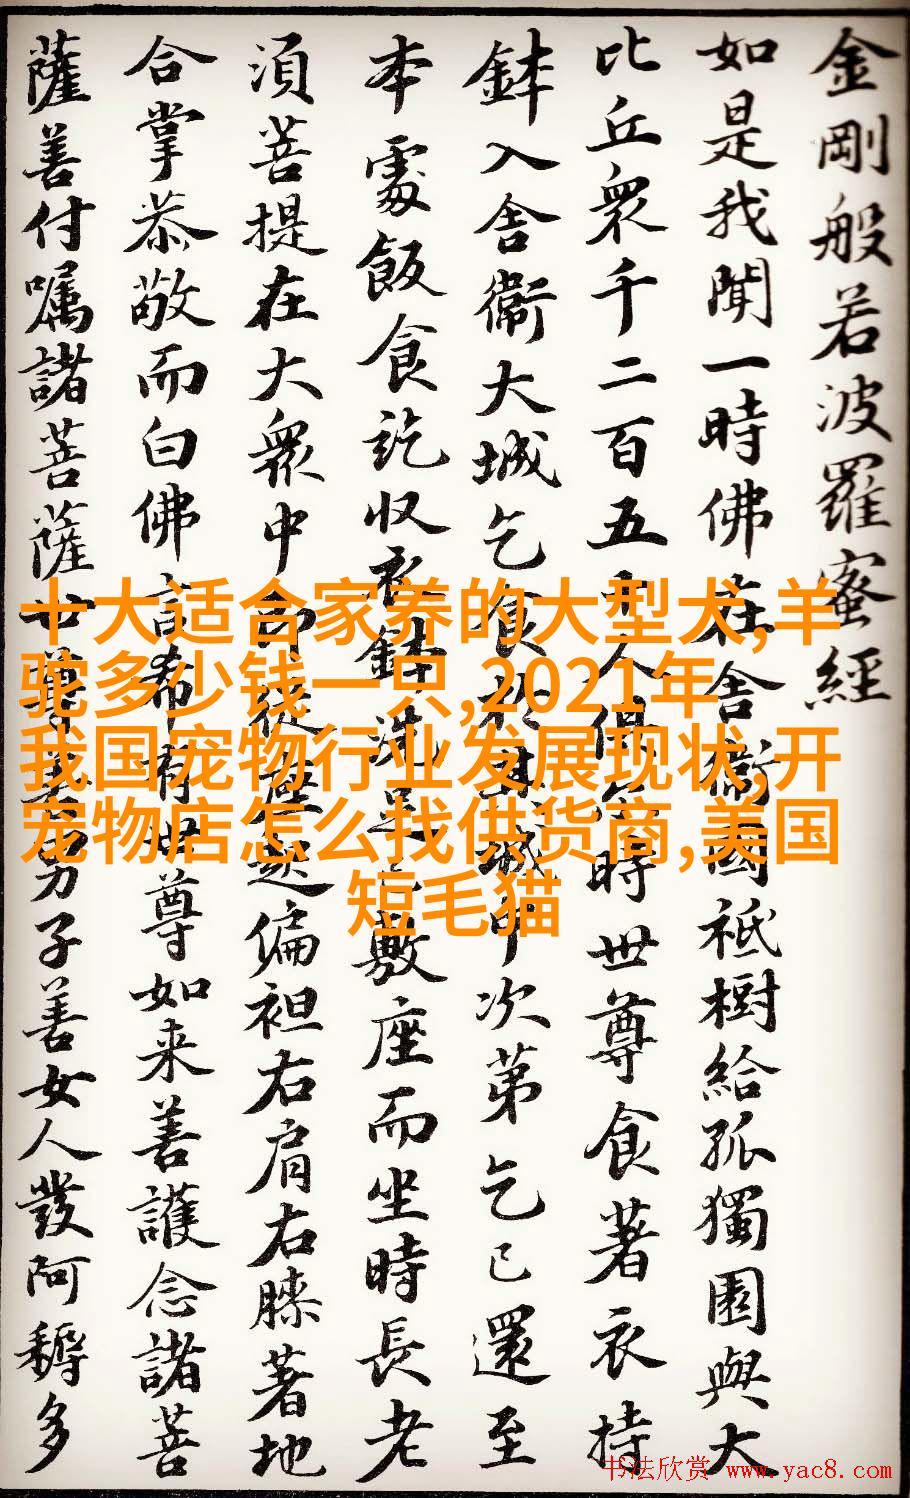 金剛般若波羅蜜經
如是我聞一時佛在舍衞國祇樹給孤獨園與大
比丘衆千二百五十人俱尒時世尊食著衣持
鉢入舍衞大城乞食於其城中次第乞已還至
本處飯食訖收衣鉢洗足已敷座而坐時長老
湏菩提在大衆中即從座起偏袒右肩右膝著地
合掌恭敬而白佛言希有世尊如来善護念諸菩
薩善付囑諸菩薩世尊善男子善女人發阿耨多
十大适合家养的大型犬,羊
驼多少钱一只,2021年
我国宠物行业发展现状,开
宠物店怎么找供货商,美国
短毛猫
书法欣赏 www.yac8.com